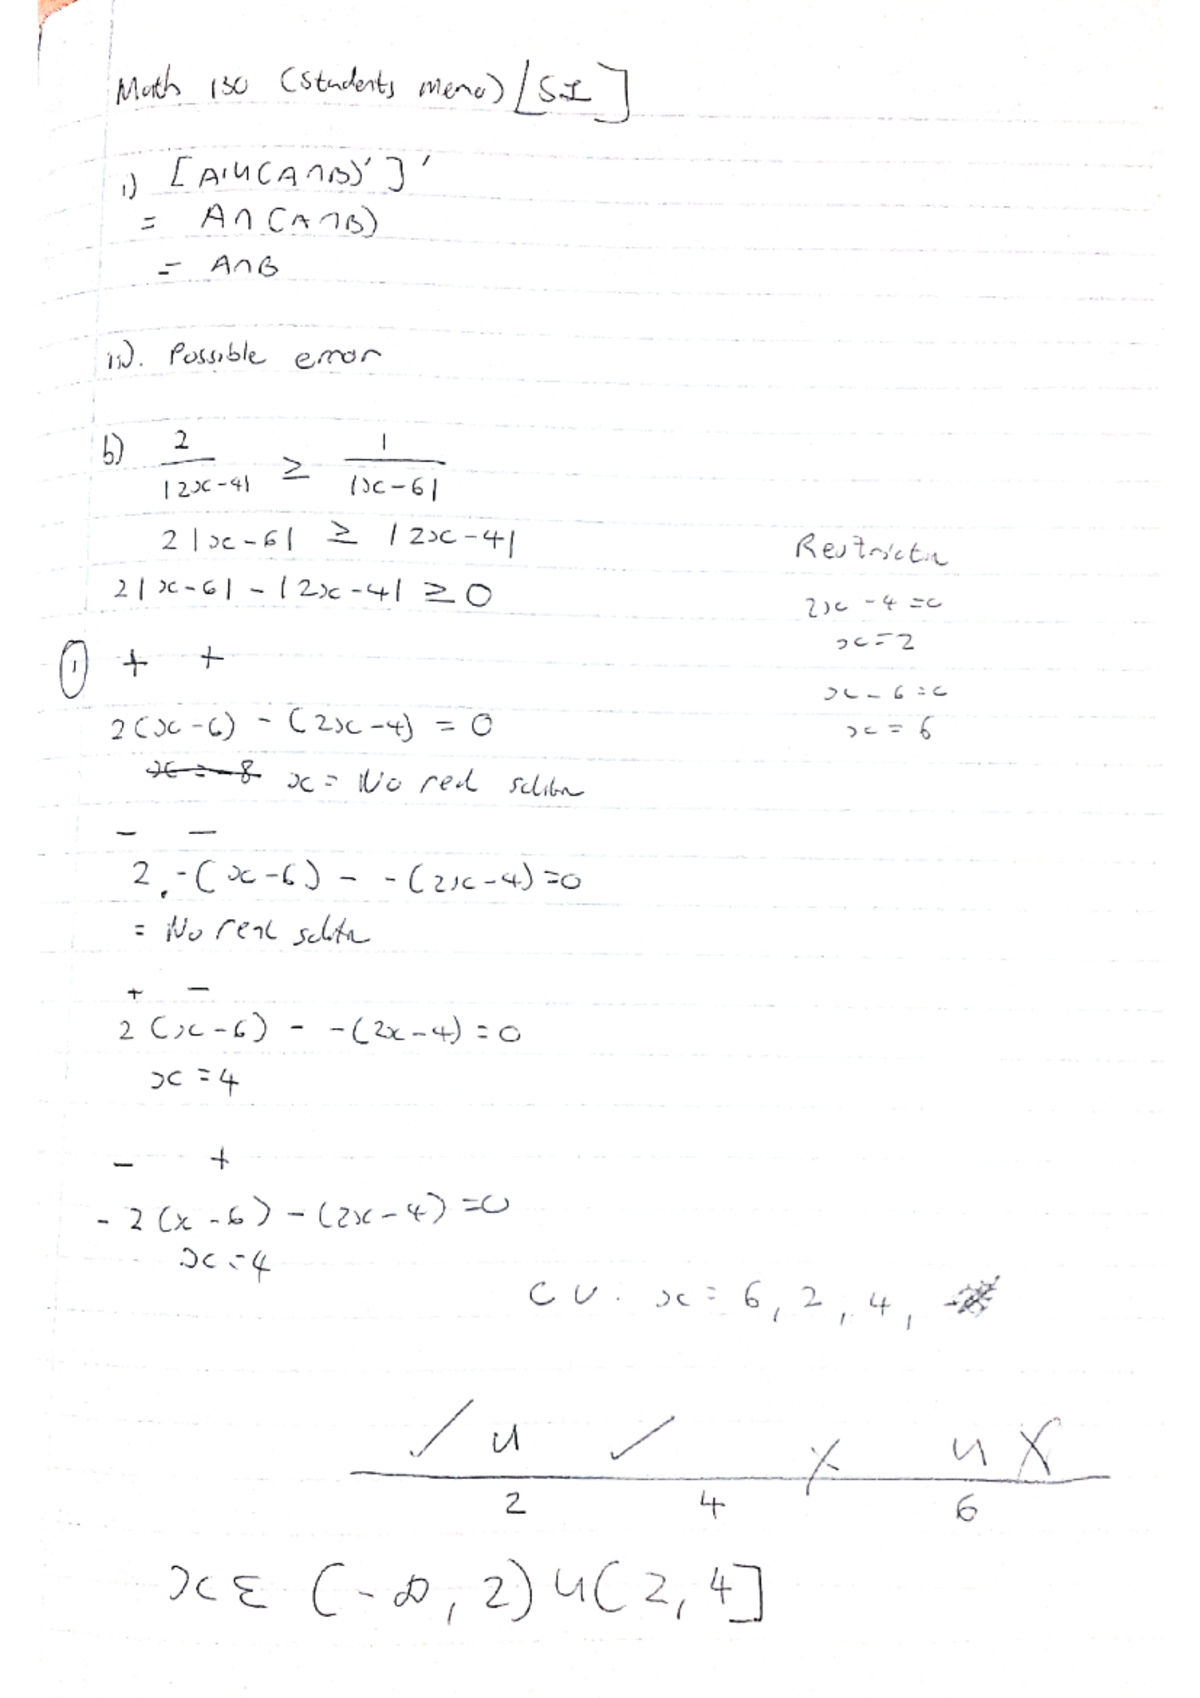 Math 130 (Students Memo) [SI]
i) [A'U(A∩B)']'
= A∩(A∩B)
= A∩B
ii). Possible error
b) 2/|2x-4| ≥ 1/|x-6|
2|x-6| ≥ |2x-4|
2|x-6| - |2x-4| ≥ 0
Restrictn
2x-4=0
x=2
x-6=0
x=6
① + +
2(x-6) - (2x-4) = 0
x = -8 x = No real solutn
- -
2.-(x-6) - -(2x-4)=0
= No real solutn
+ -
2(x-6) - -(2x-4)=0
x=4
- +
-2(x-6) - (2x-4)=0
x=4
CV. x = 6, 2, 4,
✓ U ✓ X U X
2 4 6
x ε (-∞, 2) U (2, 4]